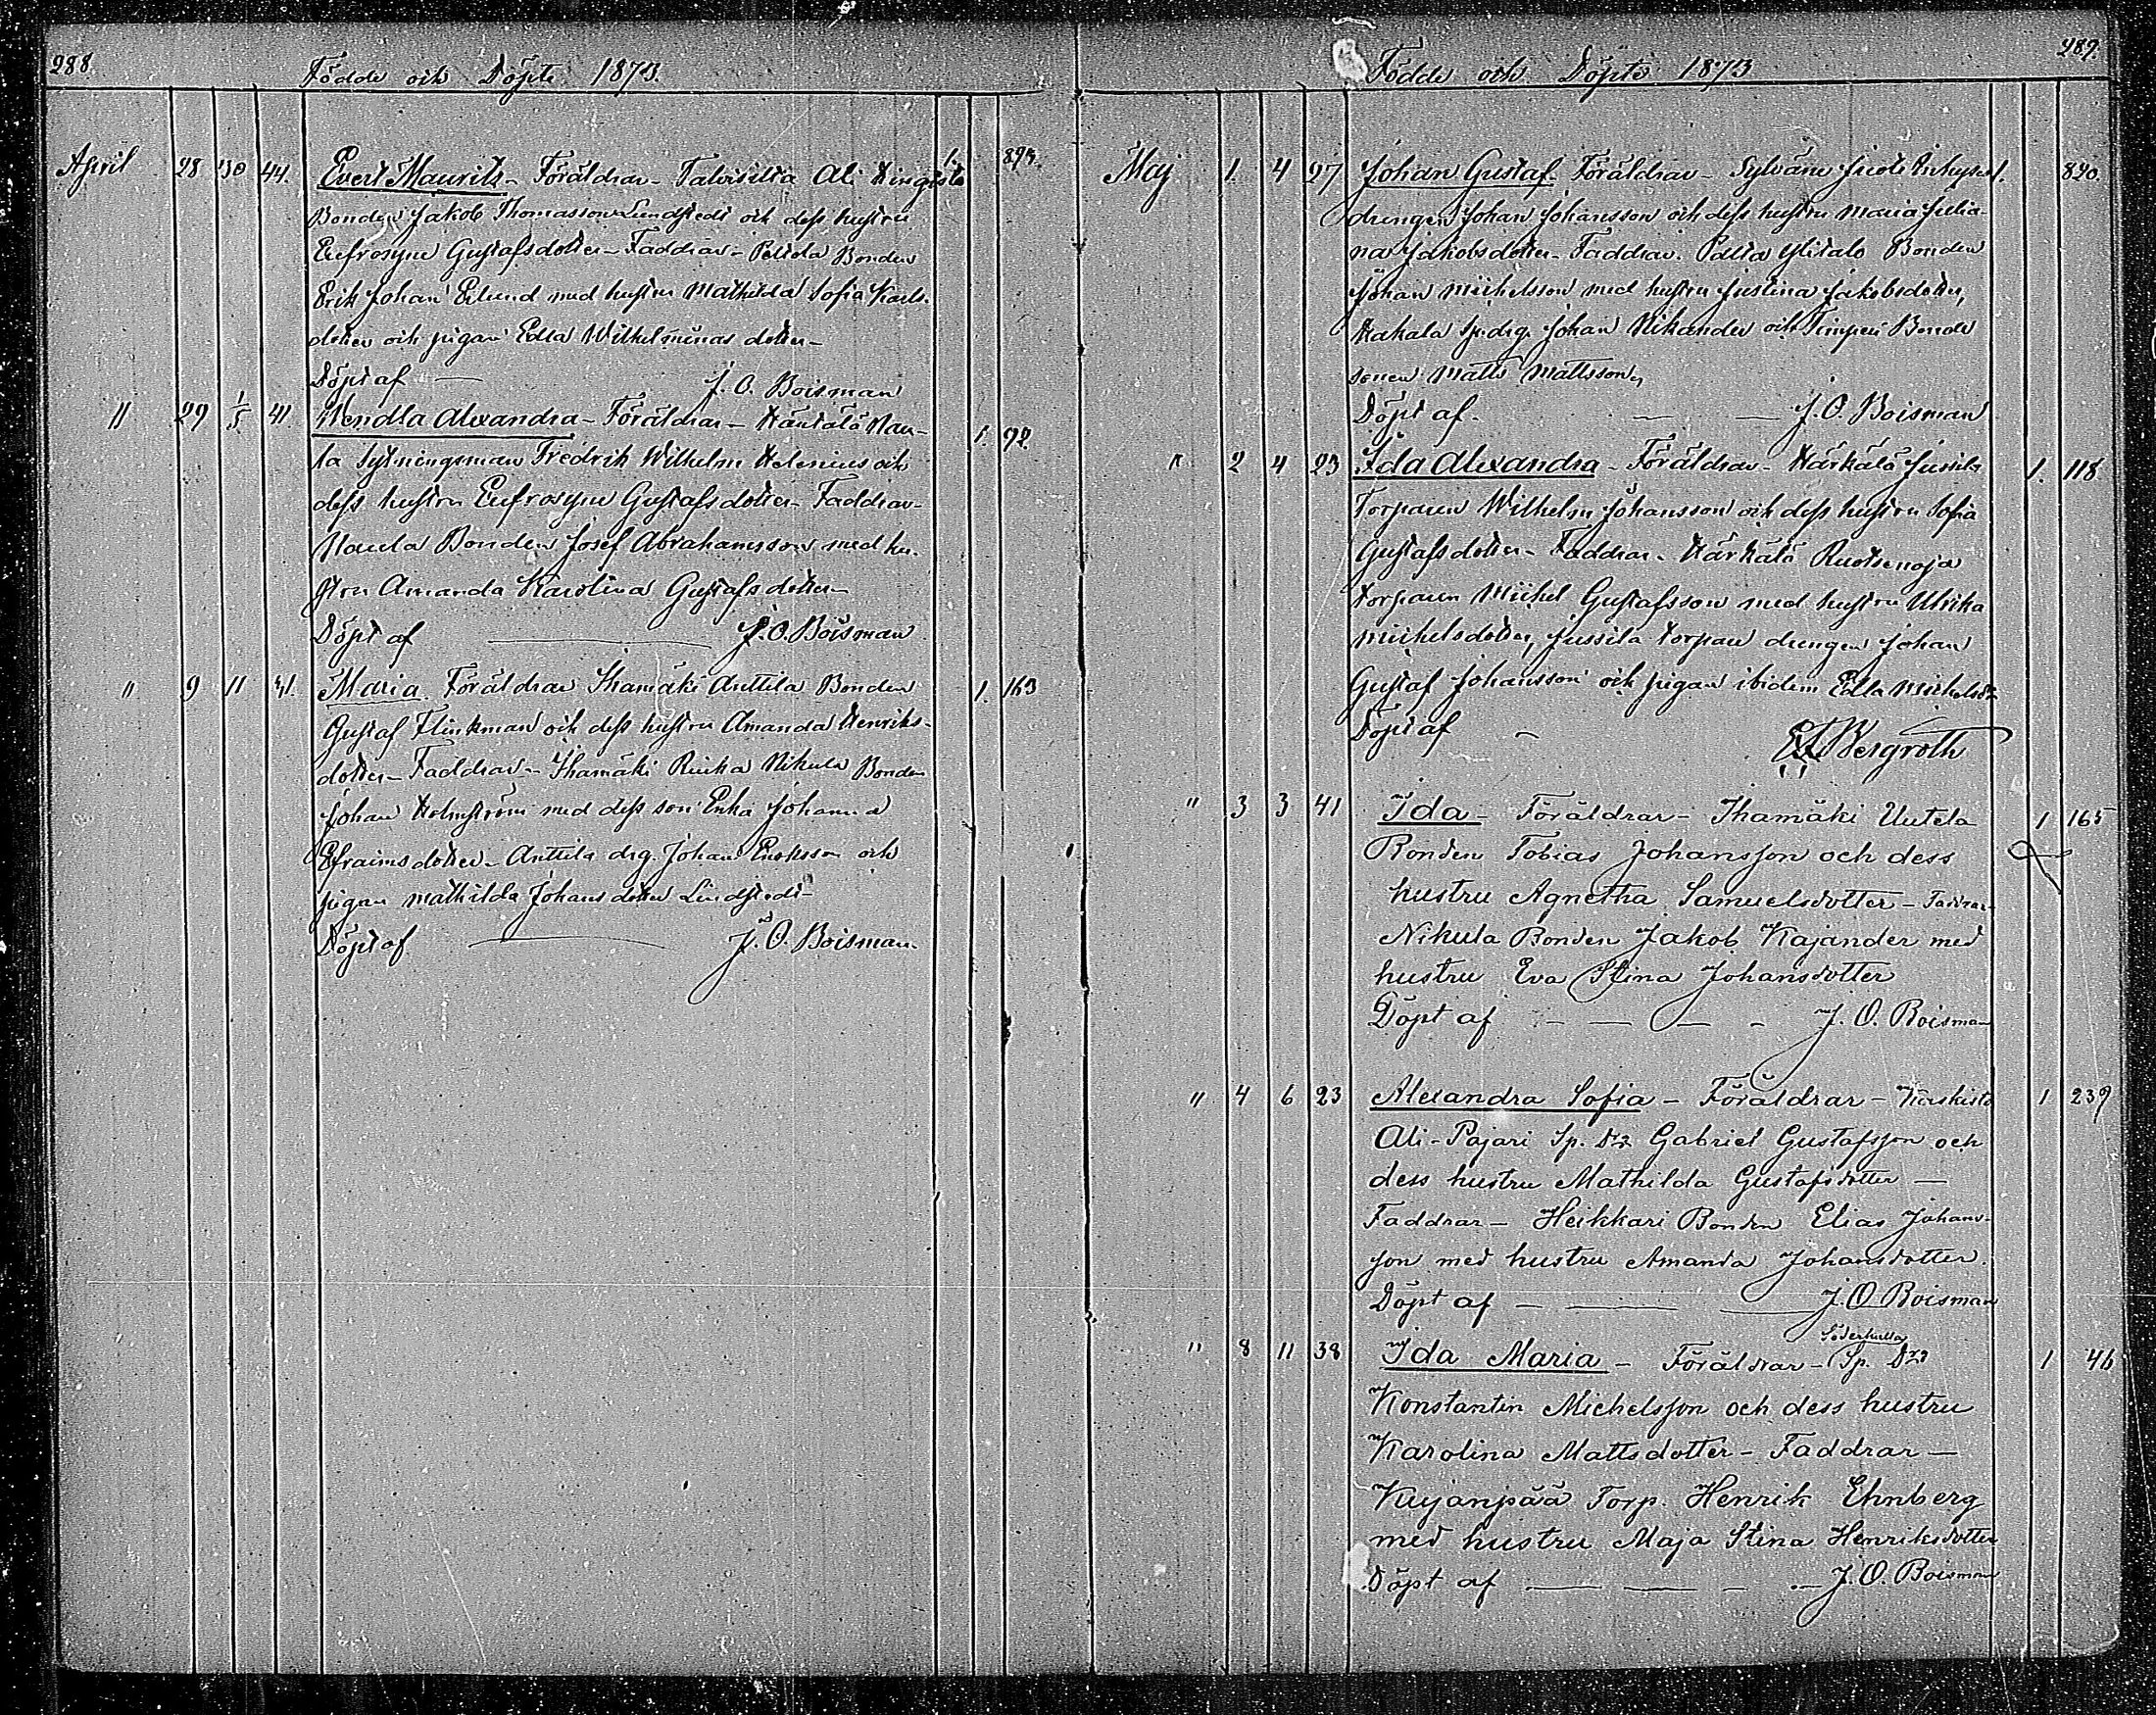 288.
Födde och Döpte 1873.
April 28 30 44. Evert Maurits - Föräldrar - Talvisilta Ali
Bonden Jakob Thomasson Lundstedt och dess hustru
Eufrosyne Gustafsdotter - Faddrar - Bonden
Erik Johan Erlund med hustru Mathilda Sofia Karls-
dotter och pigan Edla Wilhelminas dotter -
Döpt af — J. O. Boisman
" 29 1/5 41. Wendla Alexandra - Föräldrar - Nau-
la Sytningsman Fredrik Wilhelm Helenius och
dess hustru Eufrosyne Gustafsdotter - Faddrar -
Naula Bonden Josef Abrahamsson med hu-
stru Amanda Karolina Gustafsdotter -
1. 92.
Döpt af — J. O. Boisman
" 9 11 41. Maria. Föräldrar Ihamäki Anttila Bonden 1. 163
Gustaf Flinkman och dess hustru Amanda Henriks-
dotter - Faddrar - Ihamäki Nikula Bonden
Johan Holmström med dess son Enka Johanna
Efraimsdotter - Anttila drg. Johan Eriksson och
pigan Mathilda Johansdotter Lindstedt -
Döpt af — J. O. Boisman.
289.
Födde och Döpte 1873
Maj 1. 4 27 Johan Gustaf. Föräldrar - 1. 820.
drengen Johan Johansson och dess hustru Maria Julia-
na Jakobsdotter - Faddrar. Ylitalo Bonden
Johan Michelsson med hustru Justina Jakobsdotter,
Hakala Sp. drg. Johan Nikander och Bonde
sonen Matts Mattsson,
Döpt af. — — J. O. Boisman
" 2 4 23 Ida Alexandra - Föräldrar - Härkälä Jussila 1. 118.
Torparen Wilhelm Johansson och dess hustru Sofia
Gustafsdotter - Faddrar - Härkälä Ruotsenoja
torparen Michel Gustafsson med hustru Ulrika
Michelsdotter, Jussila torpare drengen Johan
Gustaf Johansson och pigan ibidem Edla Michelsdr
Döpt af - Bergroth
" 3 3 41 Ida - Föräldrar - Ihamäki Uutela 1 165
Bonden Tobias Johansson och dess
hustru Agnetha Samuelsdotter - Faddrar -
Nikula Bonden Jakob Kajander med
hustru Eva Stina Johansdotter
Döpt af - — — - J. O. Boisman
" 4 6 23 Alexandra Sofia - Föräldrar - 1 239
Ali-Pajari Sp. Dr Gabriel Gustafsson och
dess hustru Mathilda Gustafsdotter —
Faddrar - Heikkari Bonden Elias Johans-
son med hustru Amanda Johansdotter.
Döpt af - — — J. O. Boisman
Söderkulla
" 8 11 38 Ida Maria - Föräldrar - Sp. Dr 1 46
Konstantin Michelsson och dess hustru
Karolina Mattsdotter - Faddrar —
Kujanpää Torp. Henrik Ehnberg
med hustru Maja Stina Henriksdotter
Döpt af — — - — J. O. Boisman